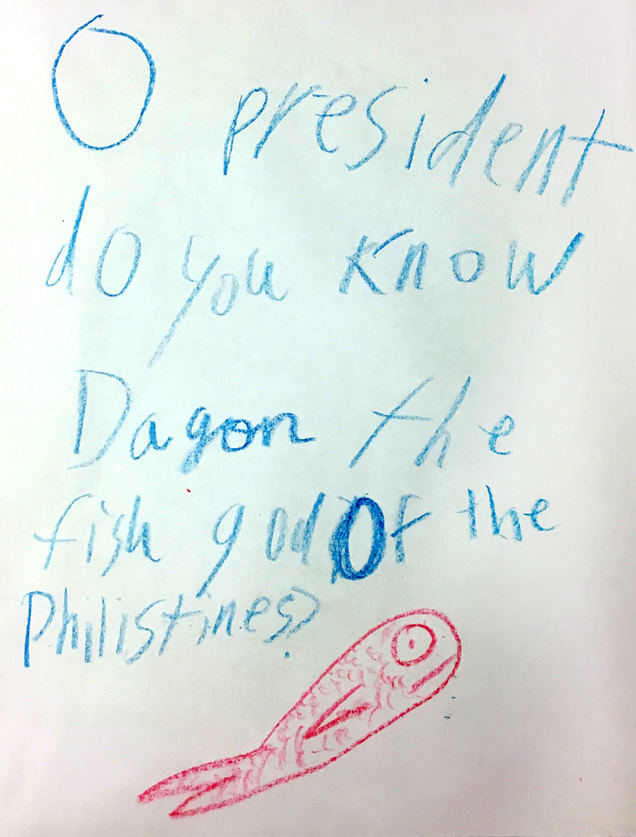 O president
do you know
Dagon the
fish god Of the
Philistines?